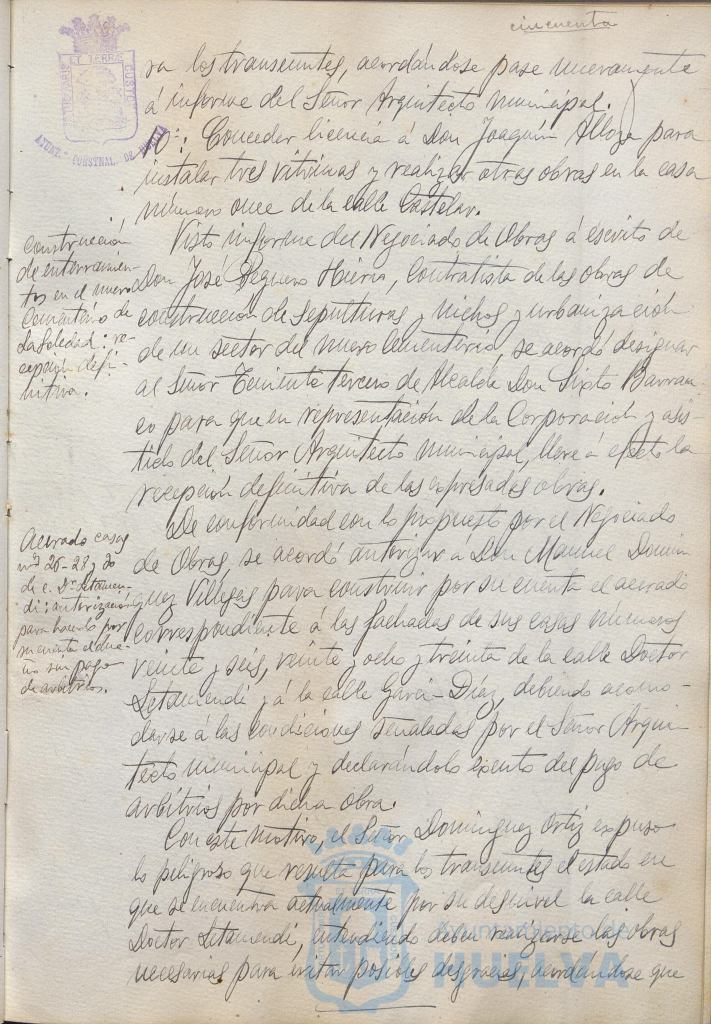 cincuenta
ra los transeuntes, acordándose pase nuevamente
á informe del Señor Arquitecto municipal.
Conceder licencia á Don Joaquín Alloza para
instalar tres vitrinas y realizar otras obras en la casa
número once de la calle Castelar.
Construcción
de enterramien-
tos en el nuevo
Cementerio de
La Soledad: re-
cepción defi-
nitiva.
Visto informe del Negociado de Obras á escrito de
Don José Peguero Hierro, Contratista de las obras de
construcción de sepulturas y nichos y urbanización
de un sector del nuevo Cementerio, se acordó designar
al Señor Teniente tercero de Alcalde Don Sixto Barran-
co para que en representación de la Corporación y asis-
tido del Señor Arquitecto municipal, lleve á efecto la
recepción definitiva de las expresadas obras.
Acerado casas
nos 26-28 y 30
de c. Dr. Letamen-
di: autorización
para hacerlo por
su cuenta el due-
ño sin pago
de arbitrios.
De conformidad con lo propuesto por el Negociado
de Obras, se acordó autorizar á Don Manuel Domín
guez Villegas para construir por su cuenta el acerado
correspondiente á las fachadas de sus casas números
veinte y seis, veinte y ocho y treinta de la calle Doctor
Letamendi y á la calle Garci-Díaz, debiendo acomo-
darse á las condiciones señaladas por el Señor Arqui-
tecto municipal y declarándolo exento del pago de
arbitrios por dicha obra.
Con este motivo, el Señor Domínguez Ortiz expuso
lo peligroso que resulta para los transeuntes el estado en
que se encuentra actualmente por su desnivel la calle
Doctor Letamendi, entendiendo deben realizarse las obras
necesarias para evitar posibles desgracias, acordándose que
Ayuntamiento de
HUELVA